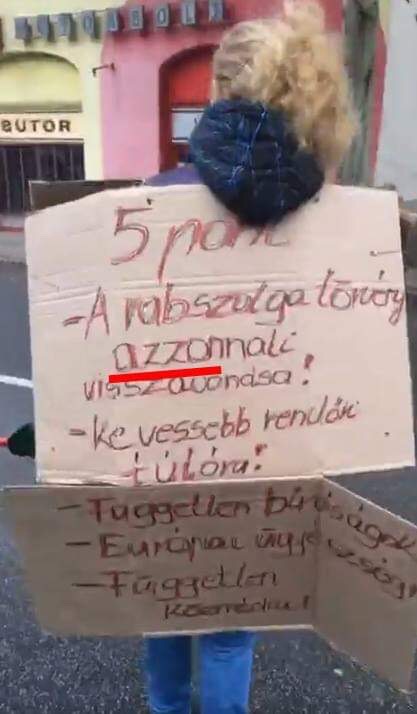 BUTOR
5 pont
-A rabszolga törvény
azzonnali
visszavonása!
-kevessebb rendőri
túlóra!
-Független bíróságok
-Európai ügyészség!
-Független
közmédia!